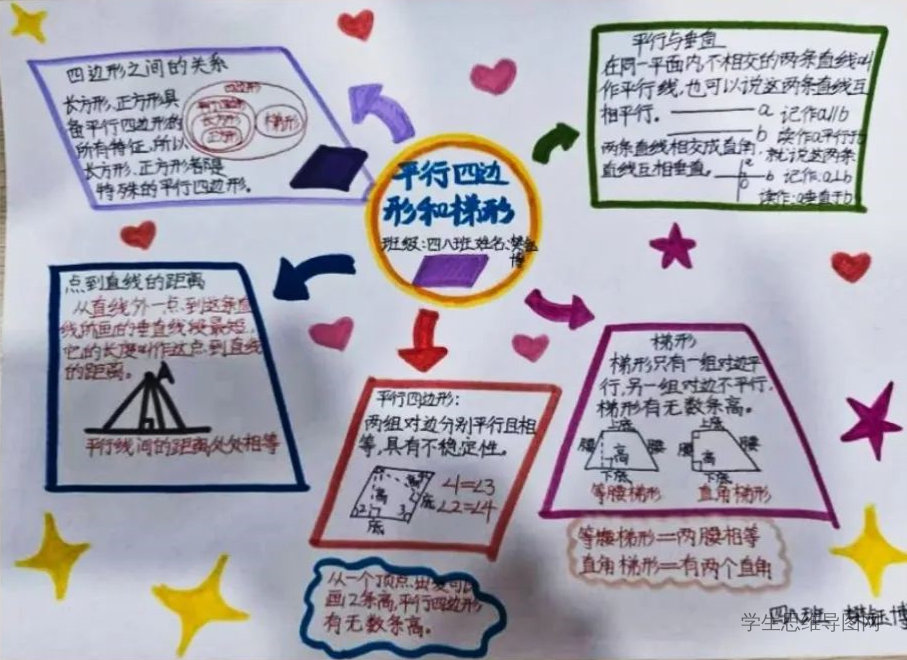 四边形之间的关系
长方形、正方形具
备平行四边形的
所有特征,所以
长方形、正方形都是
特殊的平行四边形。
四边形
平行四边形
长方形
正方形
梯形
平行四边
形和梯形
班级:四八班 姓名:樊钰
博
平行与垂直
在同一平面内,不相交的两条直线叫
作平行线,也可以说这两条直线互
相平行。
a 记作a//b
b 读作a平行于b
两条直线相交成直角,就说这两条
直线互相垂直。
a
b 记作:a⊥b
读作:a垂直于b
点到直线的距离
从直线外一点到这条直
线所画的垂直线段最短,
它的长度叫作这点到直线
的距离。
平行线间的距离处处相等
平行四边形:
两组对边分别平行且相
等,具有不稳定性。
高
高
底
2
3
底
∠1=∠3
∠2=∠4
从一个顶点出发可以
画2条高,平行四边形
有无数条高。
梯形
梯形只有一组对边平
行,另一组对边不平行,
梯形有无数条高。
上底
腰 高 腰
下底
等腰梯形
上底
腰 高 腰
下底
直角梯形
等腰梯形=两腰相等
直角梯形=有两个直角
四八班 樊钰博
学生思维导图网